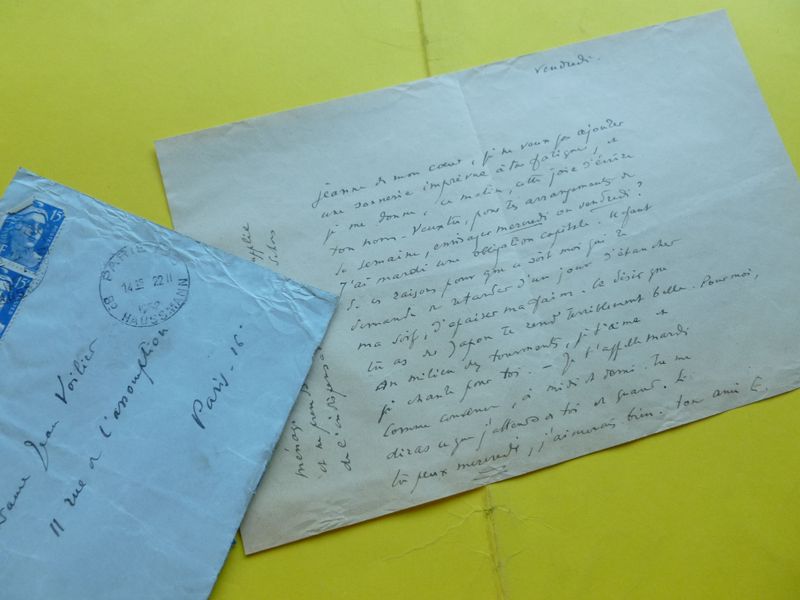 vendredi.
Jeanne de mon cœur, je ne veux pas ajouter
une sonnerie imprévue à ta fatigue, et
je me donne, ce matin, cette joie d'écrire
ton nom. Veux-tu, pour tes arrangements de
la semaine, envisager mercredi ou vendredi?
J'ai mardi une obligation capitale. Il faut
raisons pour que ce soit moi qui te
demande de retarder d'un jour d'étancher
ma soif, d'apaiser ma faim. Ce désir que
tu as de Japon te rend terriblement belle. Pour moi,
au milieu des tourments, je t'aime et
je chante pour toi. – Je t'appelle mardi
comme convenu, à midi et demi. Tu me
diras ce que j'attends de toi et quand. Si
tu peux mercredi, j'aimerais bien. ton ami E.
ménage
et ne
de l'indispensa
15
PARIS
14 15 22-11
HAUSSMANN
Jean Voilier
11 rue de l'assomption
Paris - 16e